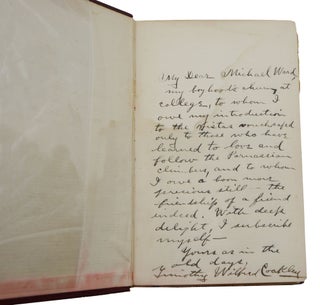 My Dear Michael Ward,
my boyhood's chum at
college, to whom I
owe my introduction
to the vistas vouchsafed
only to those who have
learned to love and
follow the Parnassian
climbers, and to whom
I owe a boon more
precious still – the
friendship of a friend
indeed. With deep
delight, I subscribe
myself—
Yours as in the
old days,
Timothy Wilfred Coakley